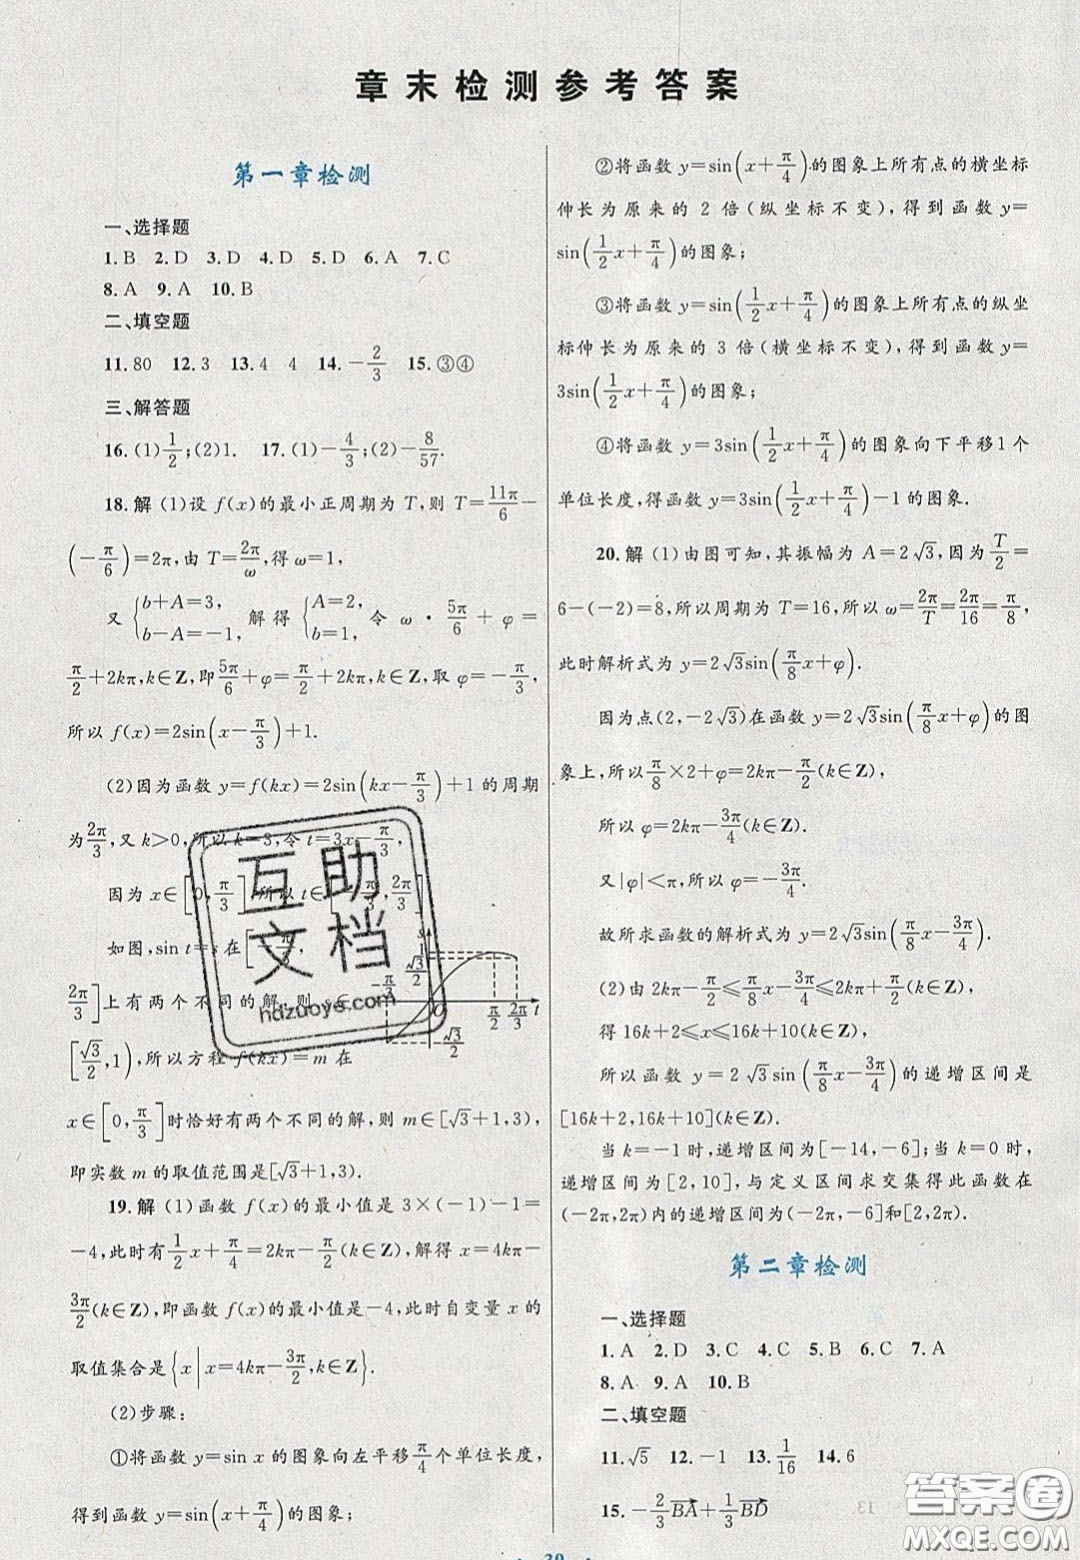 章末检测参考答案
第一章检测
一、选择题
1.B 2.D 3.D 4.D 5.D 6.A 7.C
8.A 9.A 10.B
二、填空题
11.80 12.3 13.4 4 14.-2/3 15.③④
三、解答题
16.(1)1/2;(2)1. 17.(1)-4/3;(2)-8/57.
18.解 (1)设 f(x)的最小正周期为 T,则 T=11π/6-
(-π/6)=2π,由 T=2π/ω,得 ω=1,
又 {b+A=3, b-A=-1, 解得 {A=2, b=1, 令 ω·5π/6+φ=
π/2+2kπ,k∈Z,即5π/6+φ=π/2+2kπ,k∈Z,取 φ=-π/3,
所以 f(x)=2sin(x-π/3)+1.
(2)因为函数 y=f(kx)=2sin(kx-π/3)+1 的周期
为2π/3,又 k>0,所以 k=3,令 t=3x-π/3,
因为 x∈[0,π/3],所以 t∈[-π/3,2π/3],
如图,sin t=s 在[-π/3,
2π/3]上有两个不同的解,则 s∈
[√3/2,1),所以方程 f(kx)=m 在
s
√3/2
-π/3
O
π/2 2π/3 t
-√3/2
x∈[0,π/3]时恰好有两个不同的解,则 m∈[√3+1,3),
即实数 m 的取值范围是[√3+1,3).
19.解 (1)函数 f(x)的最小值是 3×(-1)-1=
-4,此时有1/2x+π/4=2kπ-π/2(k∈Z),解得 x=4kπ-
3π/2(k∈Z),即函数 f(x)的最小值是-4,此时自变量 x 的
取值集合是{x|x=4kπ-3π/2,k∈Z}.
(2)步骤:
①将函数 y=sin x 的图象向左平移π/4个单位长度,
得到函数 y=sin(x+π/4)的图象;
②将函数 y=sin(x+π/4)的图象上所有点的横坐标
伸长为原来的 2 倍(纵坐标不变),得到函数 y=
sin(1/2x+π/4)的图象;
③将函数 y=sin(1/2x+π/4)的图象上所有点的纵坐
标伸长为原来的 3 倍(横坐标不变),得到函数 y=
3sin(1/2x+π/4)的图象;
④将函数 y=3sin(1/2x+π/4)的图象向下平移1个
单位长度,得函数 y=3sin(1/2x+π/4)-1 的图象.
20.解 (1)由图可知,其振幅为 A=2√3,因为T/2=
6-(-2)=8,所以周期为 T=16,所以 ω=2π/T=2π/16=π/8,
此时解析式为 y=2√3sin(π/8x+φ).
因为点(2,-2√3)在函数 y=2√3sin(π/8x+φ)的图
象上,所以π/8×2+φ=2kπ-π/2(k∈Z),
所以 φ=2kπ-3π/4(k∈Z).
又|φ|<π,所以 φ=-3π/4.
故所求函数的解析式为 y=2√3sin(π/8x-3π/4).
(2)由 2kπ-π/2≤π/8x-3π/4≤2kπ+π/2(k∈Z),
得 16k+2≤x≤16k+10(k∈Z),
所以函数 y=2√3sin(π/8x-3π/4)的递增区间是
[16k+2,16k+10](k∈Z).
当 k=-1 时,递增区间为[-14,-6];当 k=0 时,
递增区间为[2,10],与定义区间求交集得此函数在
(-2π,2π)内的递增区间为(-2π,-6]和[2,2π).
第二章检测
一、选择题
1.A 2.D 3.C 4.C 5.B 6.C 7.A
8.A 9.A 10.B
二、填空题
11.√5 12.-1 13.1/16 14.6
15.-2/3BA+1/3BD
39
互助
文档
hdzuoye.com
答案圈
MXQE.COM